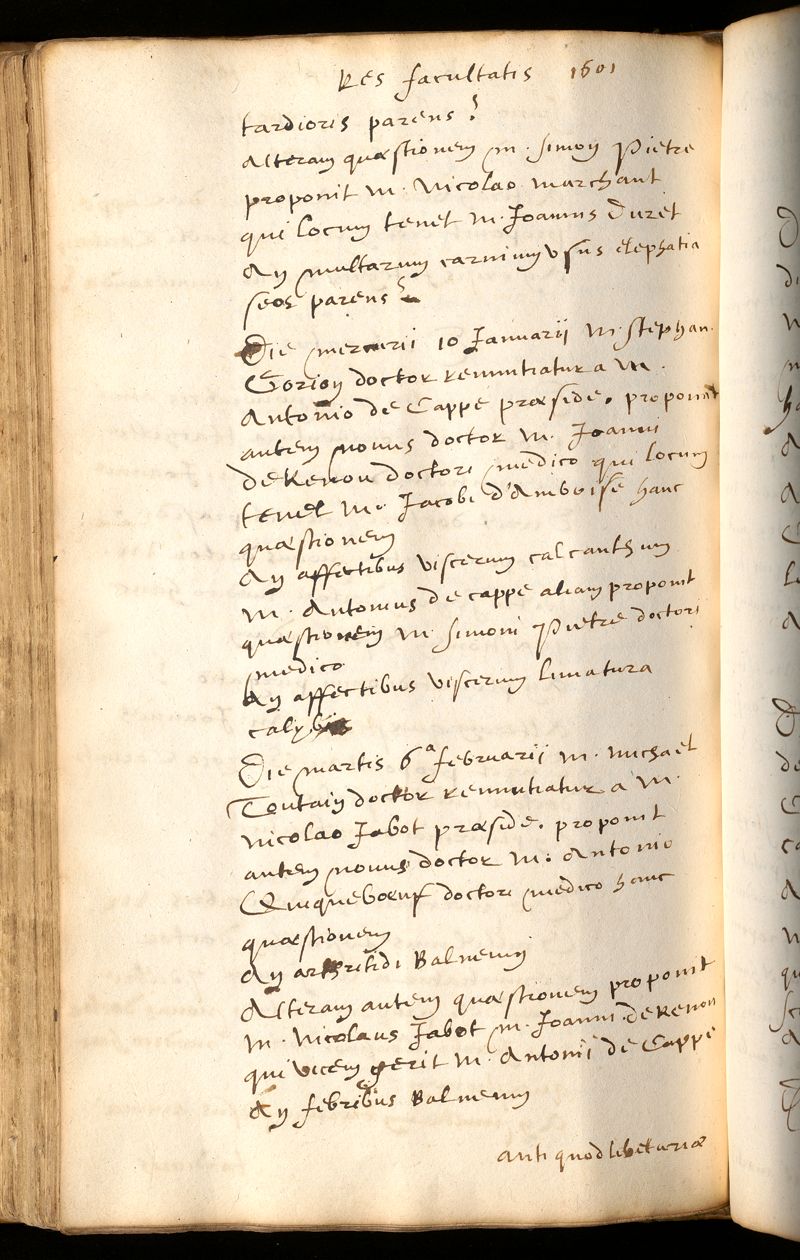 Res facultatis 1601
tardioris parens?
Alteram quæstionem M. Simon Pietre
proponit M. Nicolao Marchant
qui locum tenet M. Joannis Duret
An multarum carnium usus elephatia
seos parens?
Die mercurii 10 Januarii M. Stephan.
Gorion doctor renuntiatur a M.
Antonio de Cappe præside. proponit
autem novus doctor M. Joanni
de Renou doctori medico qui locum
tenet M. Jacobi d'Amboise hanc
quæstionem
An affectibus viscerum calcanthum
M. Antonius de Cappe aliam proponit
quæstionem M. Simoni Pietre doctori
medico
An affectibus viscerum limatura
calybis
Die martis 6a februarii M. Michael
Toutain doctor renuntiatur a M.
Nicolao Jabot præside. proponit
autem novus doctor M. Antonio
Quiqueboeuf doctori medico hanc
quæstionem
An arthritidi Balneum
Alteram autem quæstionem proponit
M. Nicolaus Jabot M. Joanni de Renou
qui vicem gerit M. Antonii de Cappe
An febribus Balneum
anti quodlibetariæ